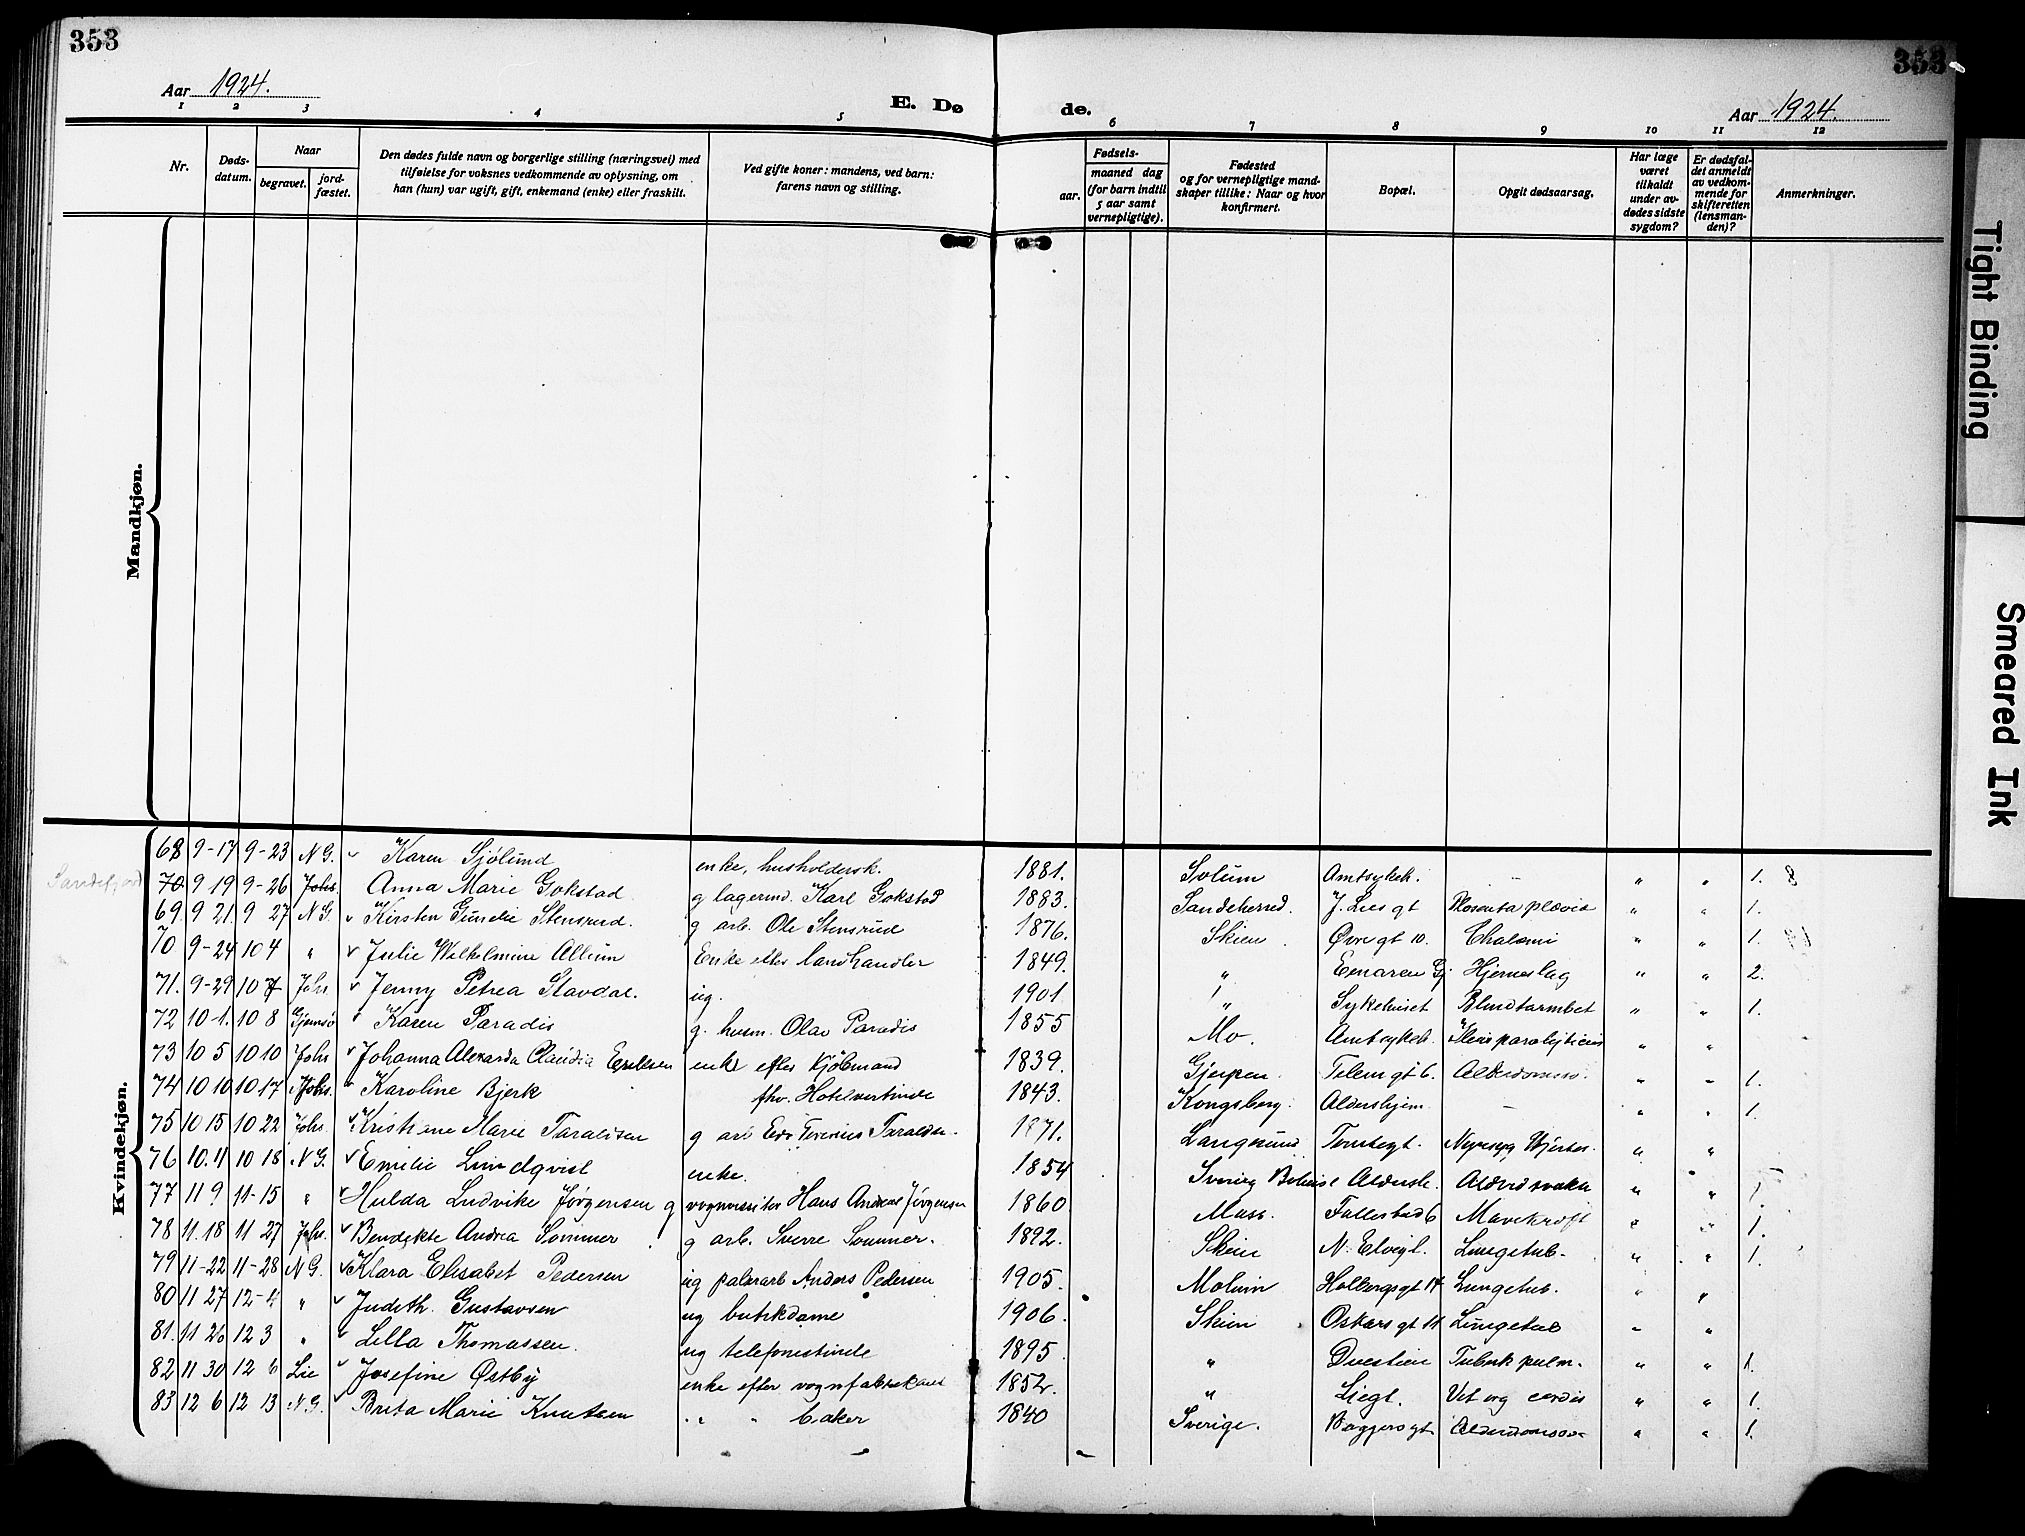 353
353
Aar 1924.
E. Dø de.
Aar 1924.
1 2 3 4 5 6 7 8 9 10 11 12
Nr.
Døds-
datum.
Naar
begravet.
jord-
fæstet.
Den dødes fulde navn og borgerlige stilling (næringsvei) med
tilføielse for voksnes vedkommende av oplysning, om
han (hun) var ugift, gift, enkemand (enke) eller fraskilt.
Ved gifte koner: mandens, ved barn:
farens navn og stilling.
Fødsels-
aar.
maaned dag
(for barn indtil
5 aar samt
vernepligtige).
Fødested
og for vernepligtige mand-
skaper tillike: Naar og hvor
konfirmert.
Bopæl.
Opgit dødsaarsag.
Har læge
været
tilkaldt
under av-
dødes sidste
sygdom?
Er dødsfal-
det anmeldt
av vedkom-
mende for
skifteretten
(lensman-
den)?
Anmerkninger.
Mandkjøn.
Kvindekjøn.
68 9-17 9-23 N G. Karen Sjølund enke, husholdersk. 1881. Solum Amtsykeh. - " " 1. 8
Sandefjord 70 9 19 9-26 Johs. Anna Marie Gokstad g lagerind. Karl Gokstad 1883. Sandeherred. J. Lies gt Plasenta plævia " " 1.
69 9 21 9 27 N G. Kirsten Gunelie Stensrud. g arb. Ole Stensrud 1876. Skien Øvre gt 10. " " 1.
70 9-24 10 4 " Julie Wilhelmine Allum Enke efter landhandler 1849. " Hjerneslag " " 2.
71. 9-29 10 Johs. Jenny Petrea Stavdal. ug. 1901 " Sykehuset Blindtarmbet " " 1.
72 10-1. 10 8 Gjemsø Karen Paradis g. husm. Olav Paradis 1855 Mo. Amtsykeh. " "
73 10 5 10 10 Johs Johanna Alexandra Claudia enke efter Kjøbmand 1839. Gjerpen Telem gt 6. " " 1.
74 10 10 10 17 Johs. Karoline Bjerk fhv. Hotelvertinde 1843. Kongsberg. Aldershjem. - " " 1.
75 10 15 10 22 Johs. Kristiane Marie Taraldsen g arb 1871. Langesund " "
76 10.11 10 18 N G. Emilie Lindqvist enke. 1854 Sverig " "
77 11 9 11-15 " Hulda Ludvike Jørgensen g Hans Andreas Jørgensen 1860 " " 1.
78 11.18 11 27 Johs. Bendikte Andrea Sommer g arb. Sverre Sommer. 1892. Skien Lungetub. " " 1.
79 11-22 11-28 N G. Klara Elisabet Pedersen ug Anders Pedersen 1905. Molum Holbergsgt 14 Lungetub. " "
80 11 27 12-4 " Judith Gustavsen ug butikdame 1906. Skien Oskars gt Lungetub " "
81. 11 26 12 3 " Lilla Thomassen. ug telefonistinde 1895 " Tuberk pulm. " " 1.
82 11 30 12 6 Lie Josefine Østby enke efter vognfabrikant 1852. " Liegt. Vit org cordis " " 1.
83 12 6 12 13 N G. Brita Marie Knutsen " " baker 1840 Sverige. " " 1.
Tight Binding
Smeared Ink